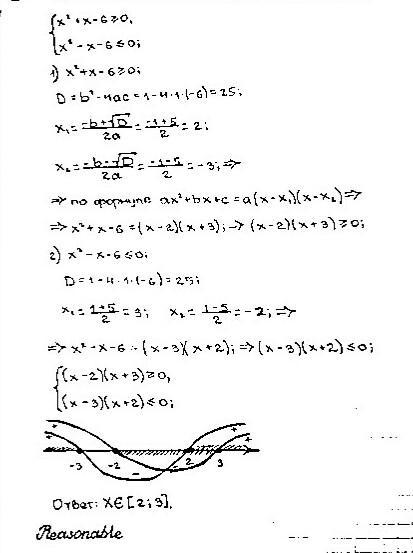 {x²+x-6≥0,
x²-x-6≤0;
1) x²+x-6≥0;
D=b²-4ac=1-4·1·(-6)=25;
x₁=(-b+√D)/2a=(-1+5)/2=2;
x₂=(-b-√D)/2a=(-1-5)/2=-3;⇒
⇒ по формуле ax²+bx+c=a(x-x₁)(x-x₂)⇒
⇒x²+x-6=(x-2)(x+3);→(x-2)(x+3)≥0;
2) x²-x-6≤0;
D=1-4·1·(-6)=25;
x₁=(1+5)/2=3; x₂=(1-5)/2=-2;⇒
⇒x²-x-6=(x-3)(x+2);⇒(x-3)(x+2)≤0;
{(x-2)(x+3)≥0,
(x-3)(x+2)≤0;
+ + - - + +
-3 -2 2 3
Ответ: X∈[2;3].
Reasonable